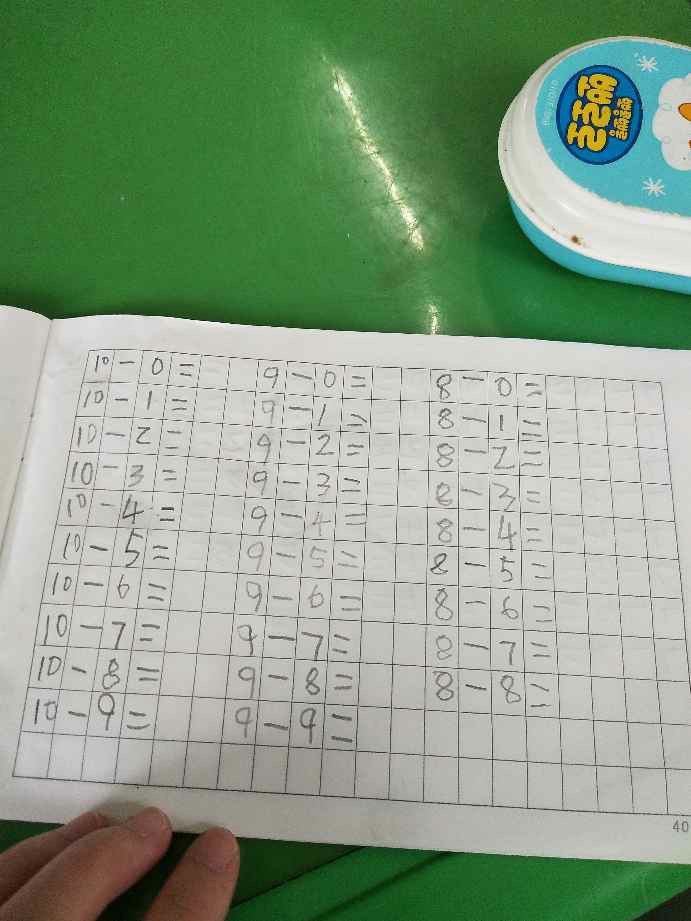 10-0= 9-0= 8-0=
10-1= 9-1= 8-1=
10-2= 9-2= 8-2=
10-3= 9-3= 8-3=
10-4= 9-4= 8-4=
10-5= 9-5= 8-5=
10-6= 9-6= 8-6=
10-7= 9-7= 8-7=
10-8= 9-8= 8-8=
10-9= 9-9=
40